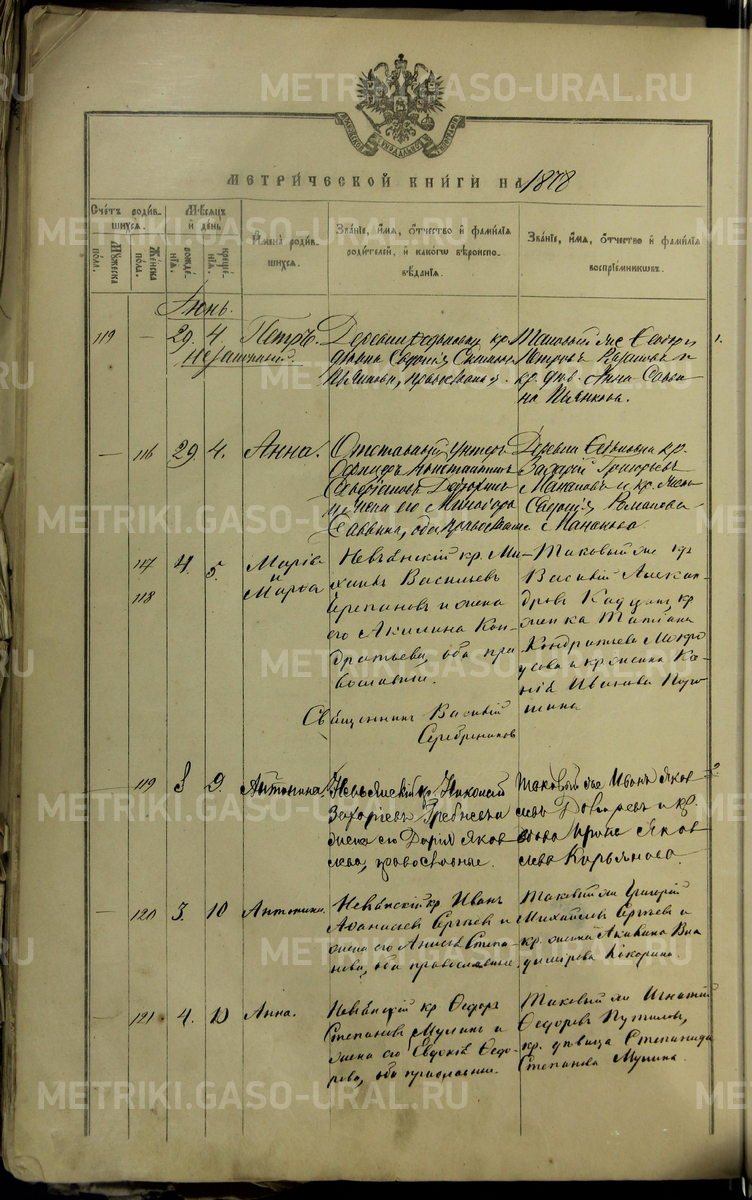 METRIKI.GASO-URAL.RU
МЕТРИЧЕСКОЙ КНИГИ НА 1878
Счетъ родившихся.
Мужеска пола.
Женска пола.
Мѣсяцъ и день
рожденія.
крещенія.
Имена родившихся.
Званіе, имя, отчество и фамилія родителей, и какого вѣроисповѣданія.
Званіе, имя, отчество и фамилія воспріемниковъ.
Іюнь.
119 — 29. 4. Петръ.
Незаконный.
Деревни кр.
дѣвица Евдокія
православная.
Таковый же
Петровъ
кр. дѣв. Анна Савви
на Пьянкова.
1.
— 116 29. 4. Анна.
Отставный Унтеръ
Офицеръ Константинъ
жена его
Саввина, оба православные
Деревни кр.
Захарій Григорьевъ
Манаковъ и кр. жена
Евдокія Романова
Манакова.
117 4. 5. Марія
118 и Марѳа
Невьянскій кр. Ми-
хаилъ Васильевъ
Черепановъ и жена
его Акилина Кон-
дратьева, оба пра
вославные.
Таковый же кр
Василій Алексан-
дровъ кр
женка Татіана
Кондратьева Мокро
усова и кр жена Ксе-
нія Иванова
Священникъ Василій
Серебренниковъ
119 8 9. Антонина.
Невьянскій кр. Николай
Захаріевъ Гребневъ и
жена его Дарія Яков
лева, православные.
Таковый же Иванъ Яков
левъ и кр.
вдова Яков
лева Карьянова.
2.
— 120 3. 10 Антонина.
Невьянскій кр Иванъ
Аѳанасіевъ Сергѣевъ и
жена его Анисья Степа-
нова, оба православные.
Таковый же Григорій
Михайловъ Сергѣевъ и
кр. женка Акилина Вла
димірова Кокорина.
— 121 4. 10 Анна.
Невьянскій кр Ѳедоръ
Степановъ Мулинъ и
жена его Евдокія Ѳедо-
рова, оба православные.
Таковый же Игнатій
Ѳедоровъ Путиловъ,
кр. дѣвица Степанида
Степанова Мулина.